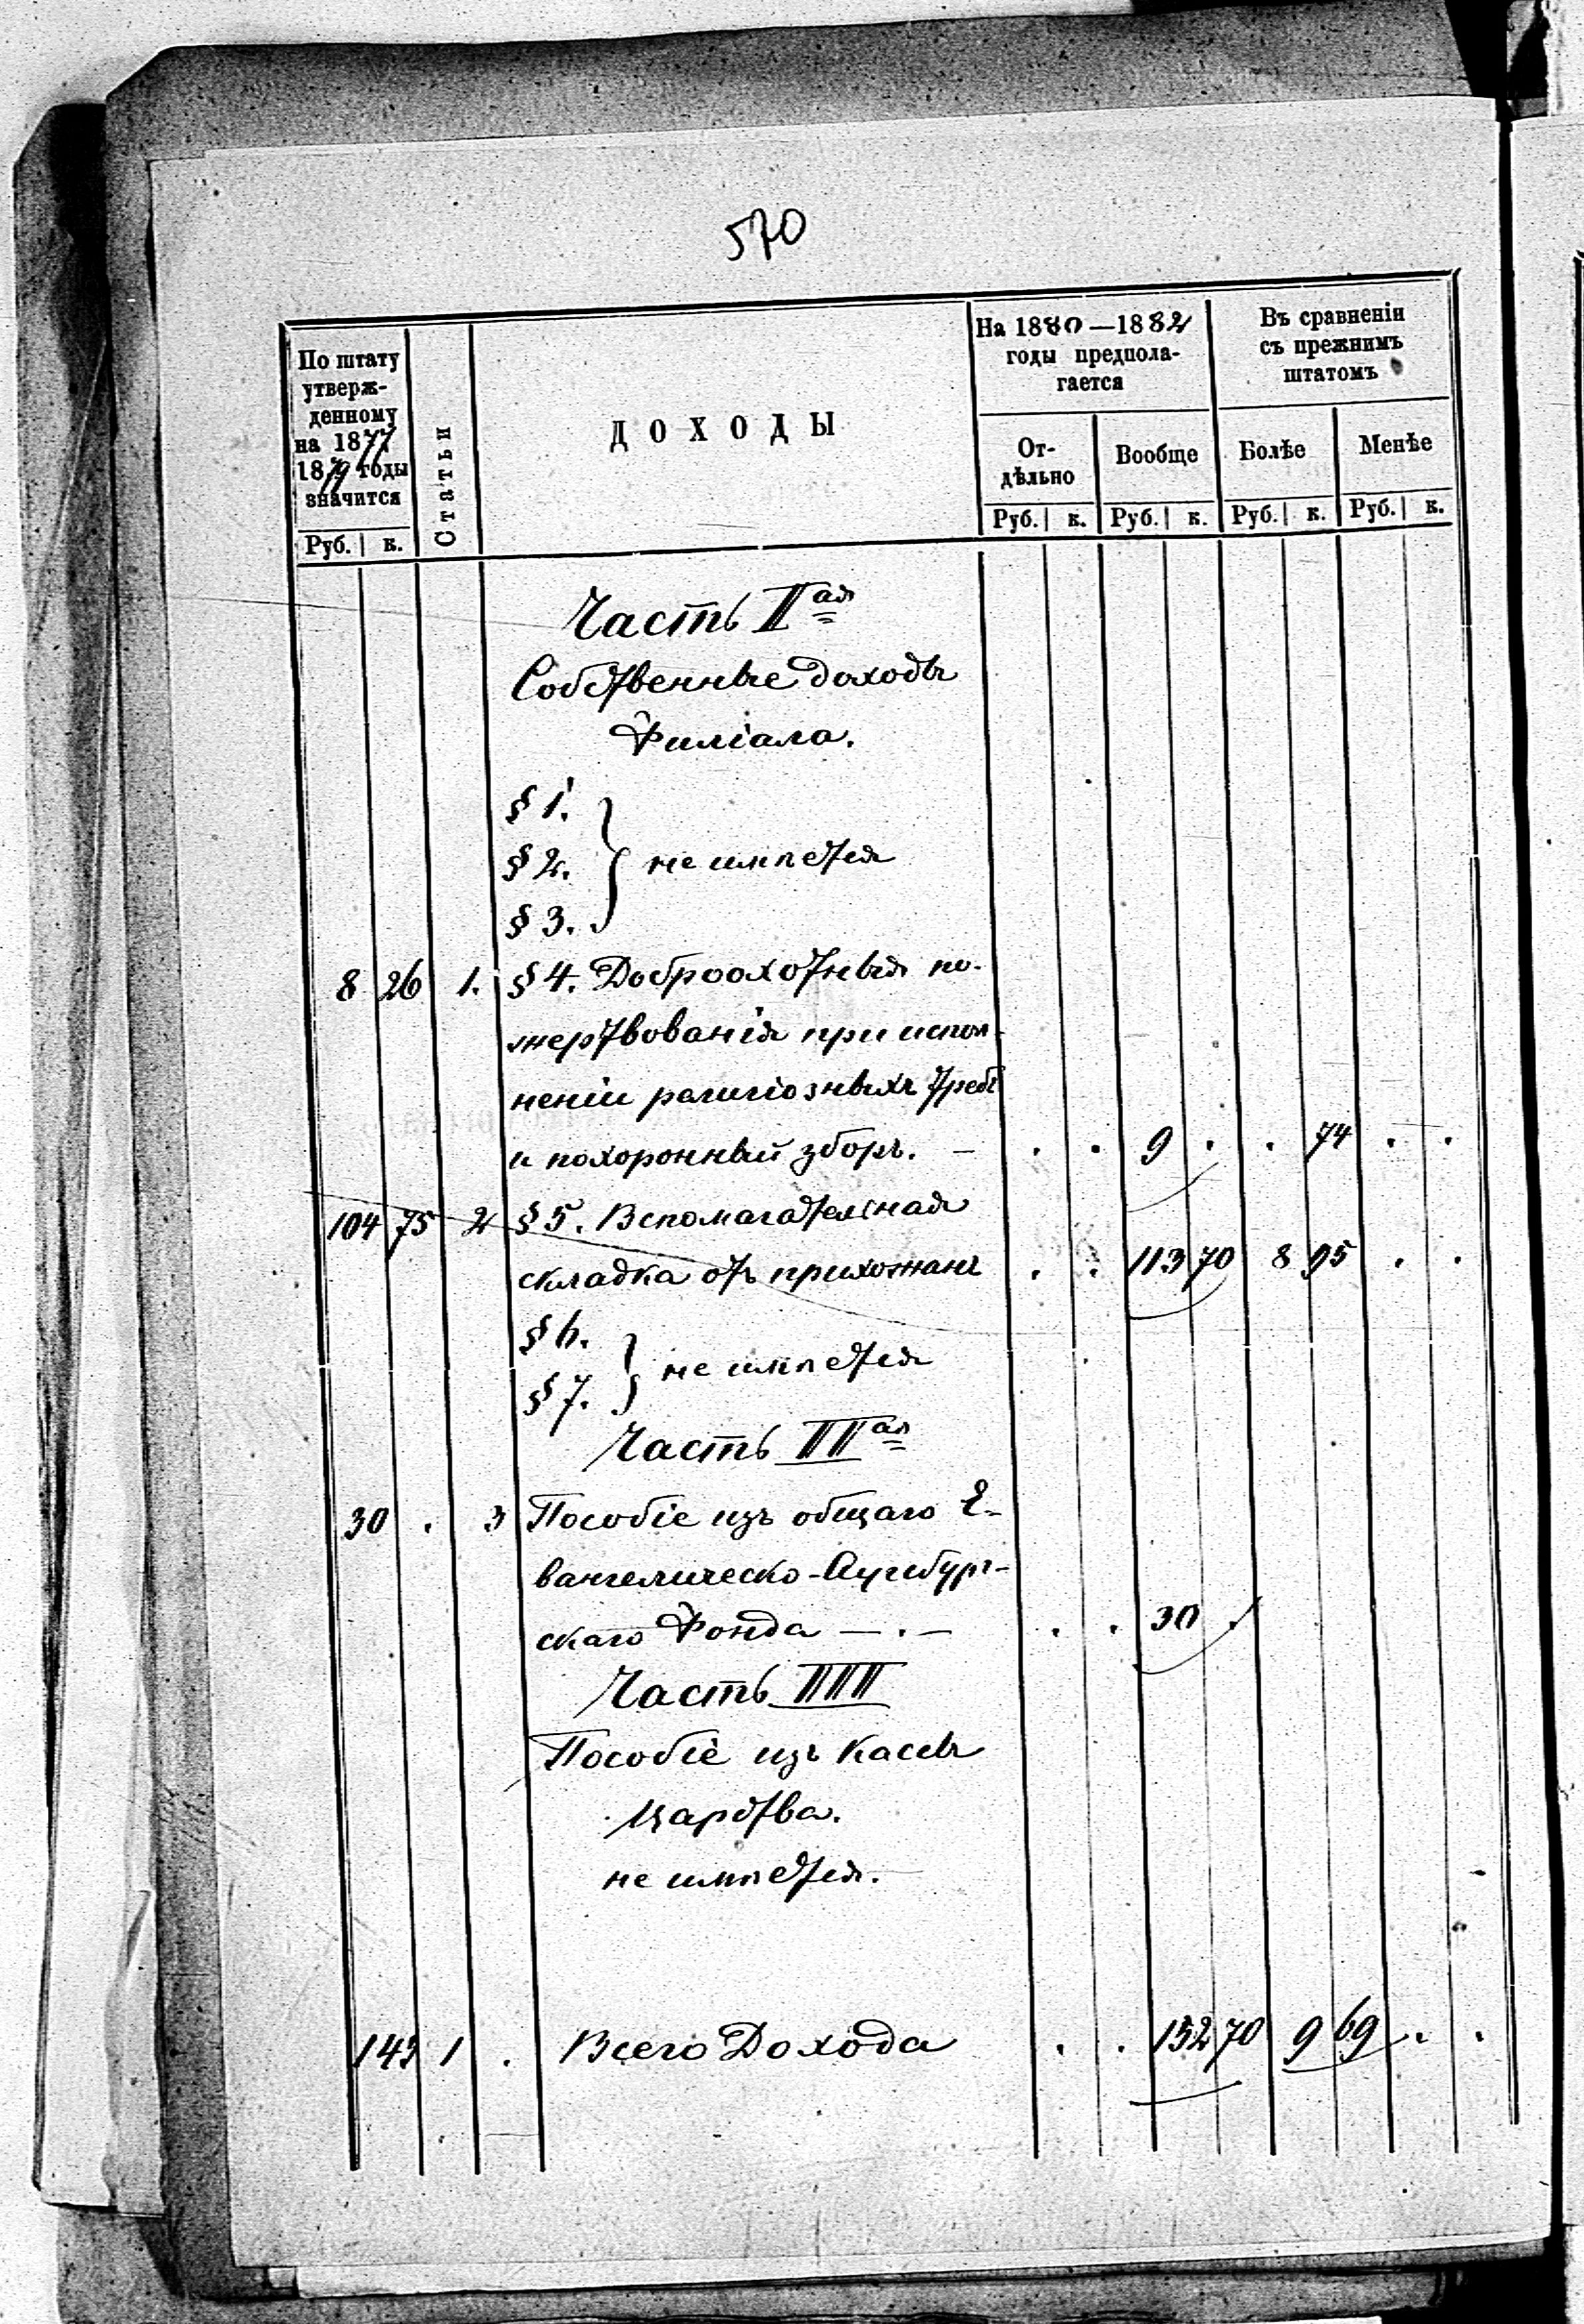 570
По штату утверж- денному на 1877 1879 годы значится
Статьи
ДОХОДЫ
На 1880—1882 годы предпола- гается
Въ сравненіи съ прежнимъ штатомъ
От- дѣльно
Вообще
Болѣе
Менѣе
Руб. к. Руб. к. Руб. к. Руб. к. Руб. к.
Часть Iая
Собственные доходы
Филіала.
§ 1.
§ 2. } не имѣется
§ 3.
8 26 1. § 4. Доброохотныя по-
жертвованія при испол-
неніи религіозныхъ требъ
и похоронный зборъ. — . . 9 . . 74 . .
104 75 2 § 5. Вспомагательная
складка отъ прихожанъ . . 113 70 8 95 . .
§ 6.
§ 7. } не имѣется
Часть IIая
30 . 3 Пособіе изъ общаго Е-
вангелическо-Аугсбург-
скаго Фонда — . — . . 30 .
Часть III
Пособіе изъ Кассы
Царства.
не имѣется.
143 1 . Всего Дохода . . 152 70 9 69 . .